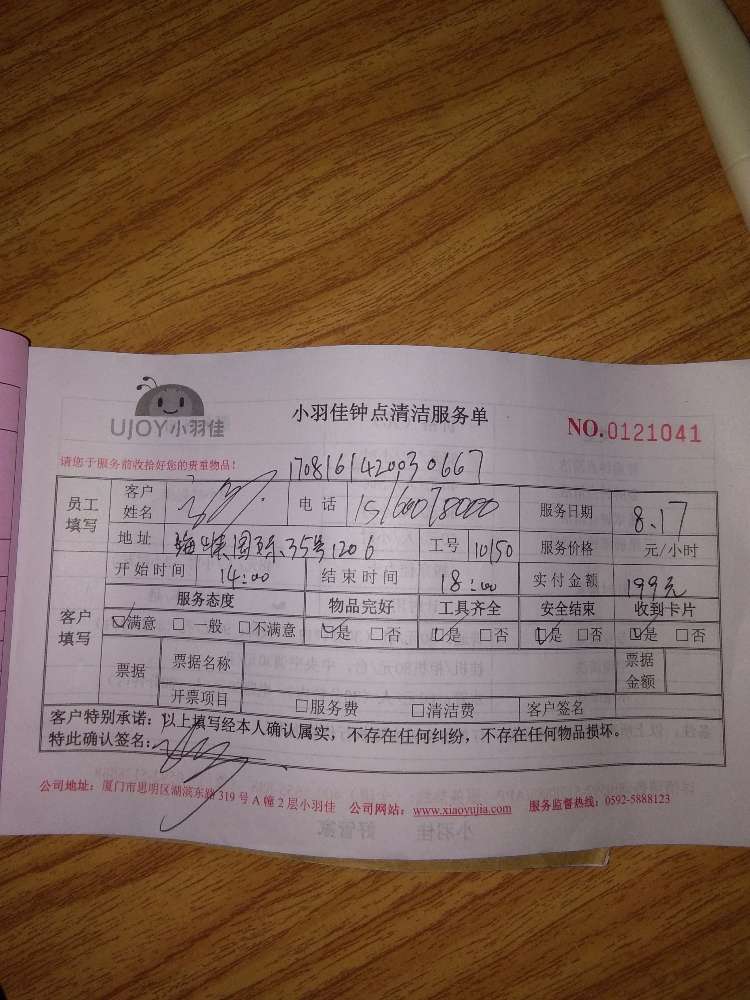 UJOY小羽佳
小羽佳钟点清洁服务单
NO.0121041
请您于服务前收拾好您的贵重物品!
170816142003 0667
员工填写 客户姓名 电话 服务日期 8.17
地址 国际35号1206 工号 10150 服务价格 元/小时
客户填写 开始时间 14:00 结束时间 18:00 实付金额 199元
服务态度 物品完好 工具齐全 安全结束 收到卡片
☑满意 □一般 □不满意 ☑是 □否 ☑是 □否 ☑是 □否 ☑是 □否
票据 票据名称 票据金额
开票项目 □服务费 □清洁费 客户签名
客户特别承诺:以上填写经本人确认属实,不存在任何纠纷,不存在任何物品损坏。
特此确认签名:
公司地址:厦门市思明区湖滨东路319号A幢2层小羽佳 公司网站:www.xiaoyujia.com 服务监督热线:0592-5888123